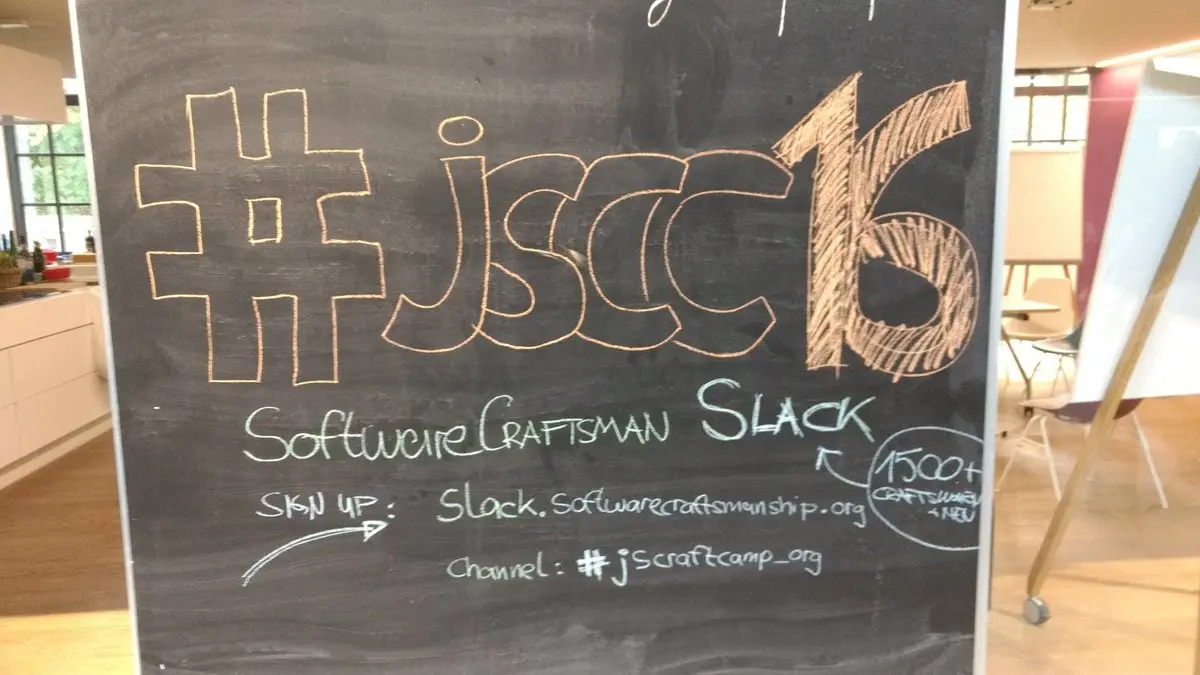 #jscc16
SoftwareCraftsman Slack
1500+
CRAFTSWOMEN
+MEN
SIGN UP: Slack.softwarecraftsmanship.org
Channel: #jscraftcamp_org